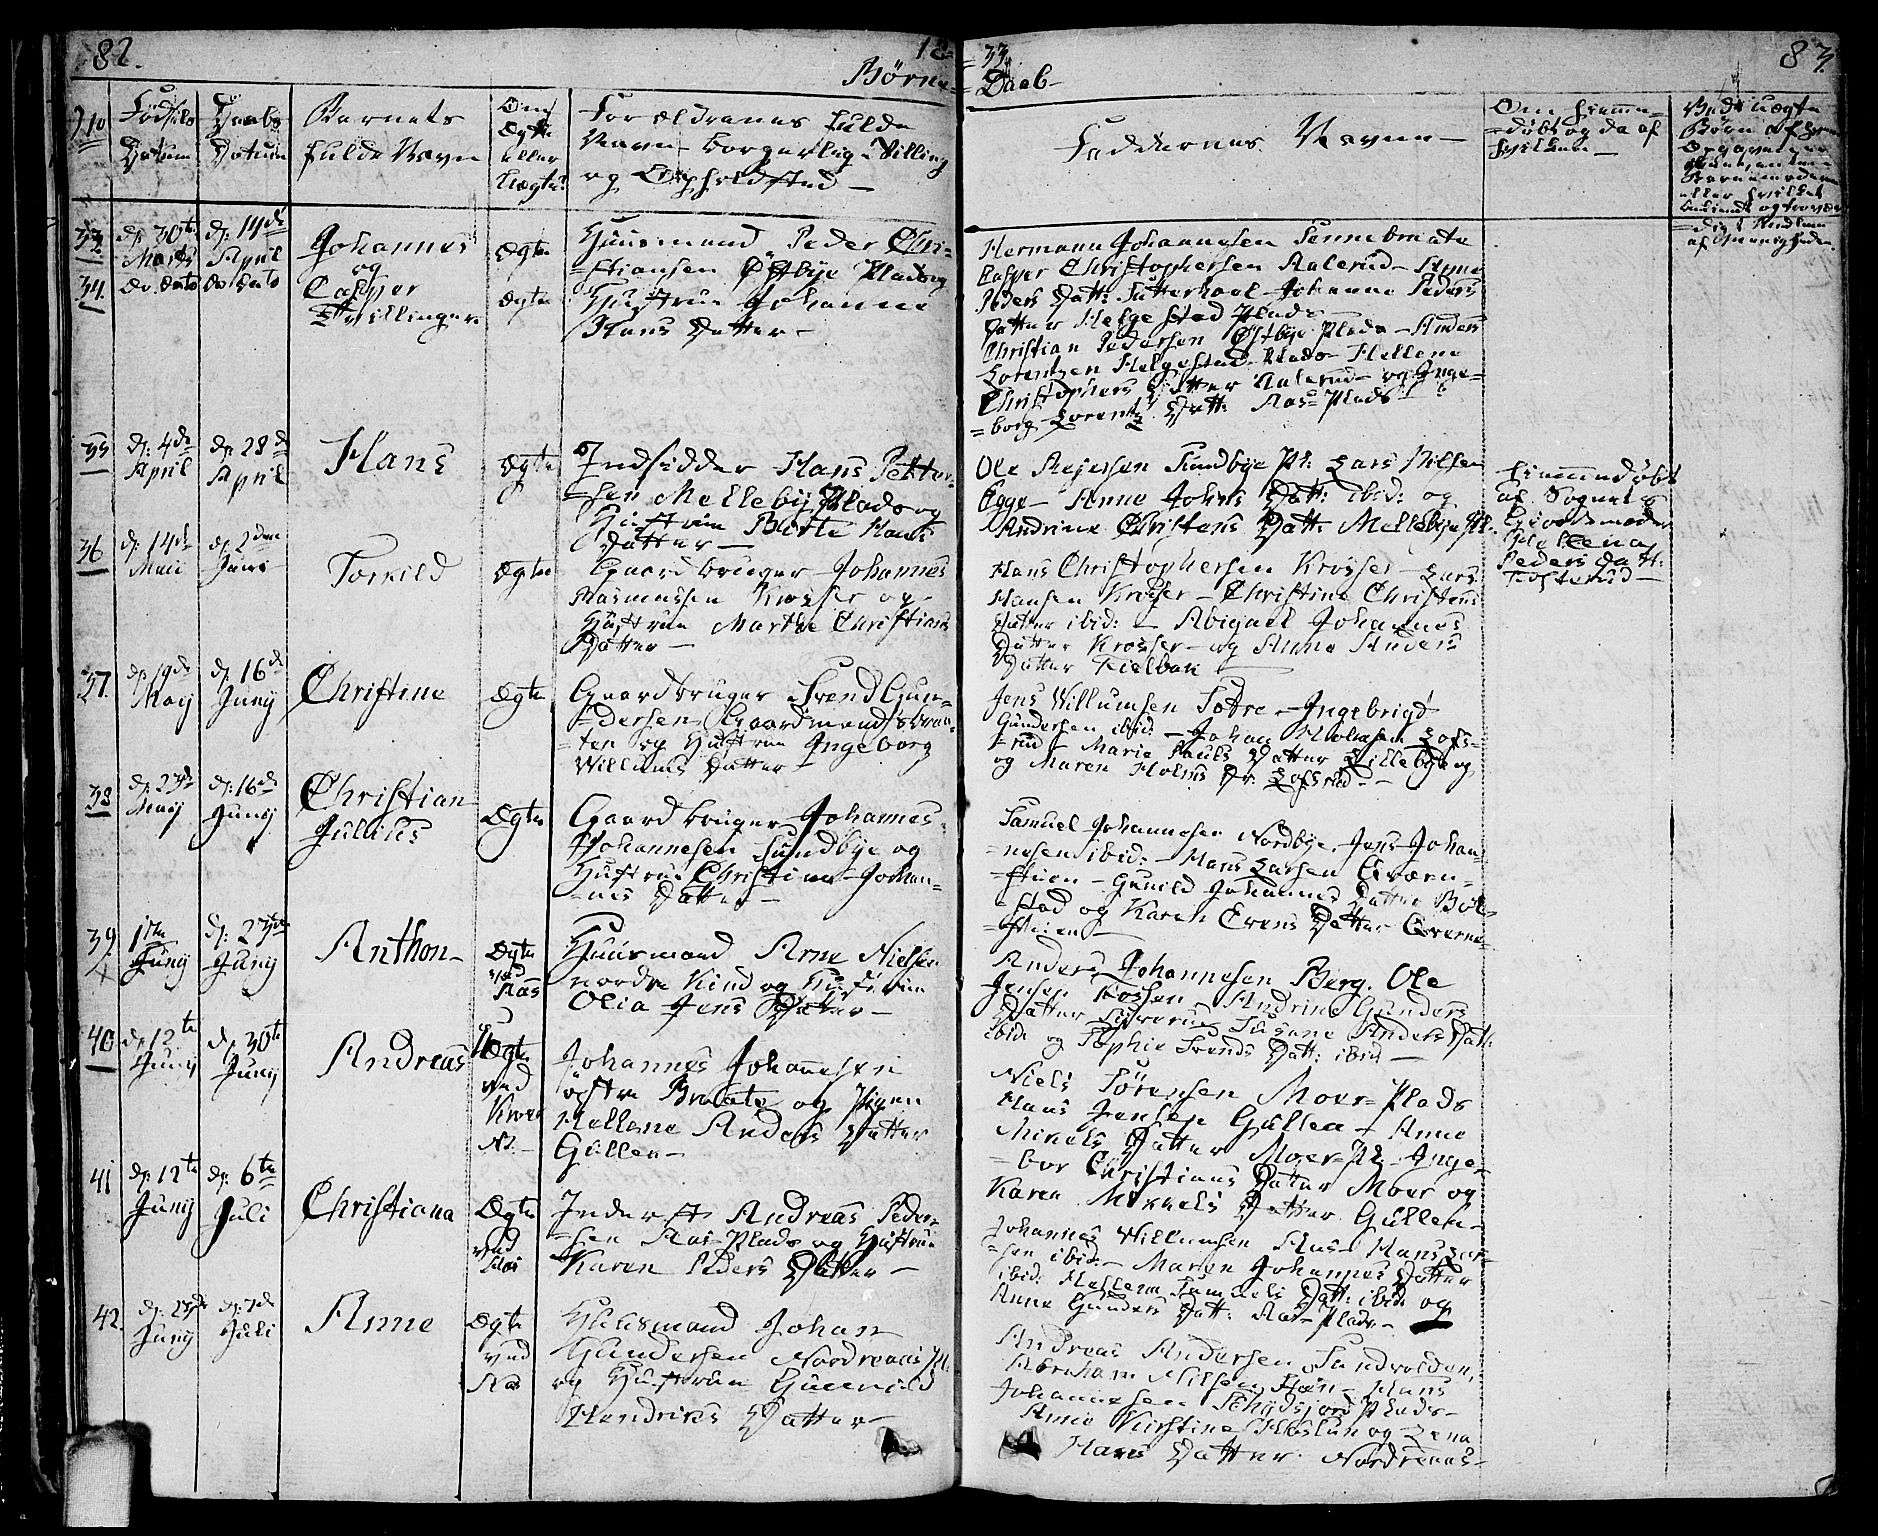 82.
18
Børne-
No
Fødsels
Datum
Daabs
Datum
Barnets
fulde Navn
Om
Ægte
eller
Uægte
Forældrenes fulde
Navn borgerlig Stilling
og Opholdsted
33
34
d: 30te
Marts
do Dato
d: 14de
April
do Dato
Johannes
og
Casper
Tvillinger
Ægte
Ægte
Huusmand Peder Chri-
=stiansen Østbye Plads og
Hustrue Johanne
Hans Datter-
35
d: 4de
April
d: 28de
April
Hans
Ægte
Indsidder Hans Petter-
=sen Mellebye Plads og
Hustrue Birte Hans
Datter-
36
d: 14de
Maii
d: 2den
Juni
Torkild
Ægte
Gaardbruger Johannes
Rasmussen Krosser og
Hustrue Marthe Christians
Datter-
37.
d: 19de
Maij
d: 16de
Junij
Christine
Ægte
Gaardbruger Svend Gun-
=dersen Gaardmandsbraa-
=ten og Hustrue Ingeborg
Willums Datter-
38
d: 23de
Maij
d: 16de
Junij
Christian
Julius
Ægte
Gaardbruger Johannes
Johannesen Sundbye og
Hustrue Christine Johan-
=nes Datter-
39.
1ste
Junij
d: 23de
Junij
Anthon-
Ægte
ved
Aas
Huusmand Arne Nielsen
nordre Kind og Hustrue
Olia Jens Datter-
40
d: 12te
Junij
d: 30te
Junij
Andreas
Uægte
ved
Kroer
Johannes Johannesen
østre Braate og Pigen
Hellene Anders Datter
Gullen-
41
d: 12te
Junij
d: 6te
Juli
Christiana
Ægte
ved
Aas
Inderst Andreas Peder-
=sen Aas-Plads og Hustrue
Karen Peders Datter-
42.
d: 23de
Junij
d: 7de
Juli
Anne
Ægte
ved
Aas
Huusmand Johan
Gundersen Nordreaas Pl:
og Hustrue Gunnild
Hendrichs Datter-
33.
83
=Daab-
Faddernes Navne-
Om hiemme-
=døbt og da af
hvilken-
Ved uægte
Børn
Hermann Johannesen Sennebraate
Casper Christophersen Aalerud- Anne
Peders Datt: Sutterhoel- Johanne Peders
Datter Helgestad Plads-
Christian Pedersen Østbye Plads- Anders
Lorentzen Helgestad Plads- Hellene
Christophers Datter Aalerud- og Inge-
=borg Lorentz Datt: Aas-Plads-
Ole Rejersen Sundbye Pl: Lars Nilsen
Egge- Anne Johns Datt: ibid: og
Andrine Christens Datt: Mellebye Pl.
Hiemmedøbt
af Sognets
Giordemoder
Helena
Peders Datt:
Tosterud-
Hans Christophersen Krosser- Lars
Hansen Krosser- Christine Christens
Datter ibid:- Abiguel Johannes
Datter Krosser- og Anne Anders
Datter Kielbae
Jens Willumsen Sotre- Ingebrigd
Gundersen ibid:- Johan Holmsen Lofs-
=rud- Marie Pauls Datter Lillebye og
og Maren Holms Dr. Lofsrud--
Samuel Johannesen Nordbye, Jens Johan-
=nesen ibid:- Hans Larsen Qværn-
=stuen- Gunild Johannes Datter Bøl-
=stad og Karen Evens Datter Qværne-
=stuen-
Anders Johannesen Berg. Ole
Jensen Fossen- Andrine Gunders
Datter Syverud Anders Datt:
ibid og Sophie Svends Datt: ibid-
Niels Sørensen Moer-Plads
Hans Jensen Gullen- Anne
Mikels Datter Moer-Pl- Inge-
=bor Christians Datter Moer og
Karen Mikkels Datter Gullen-
Johannes Willumsen Aas- Hans Lar-
=sen ibid:- Maren Johannes Datter
ibid: Hellene Samuels Datt: ibid: og
Anne Gunders Datt: Aas-Plads-
Andreas Andersen Sundvolden,
Abraham Nilsen Hoen- Hans
Johannesen Plads-
Anne Kirstine og Lena
Hans Datter Nordreaas-